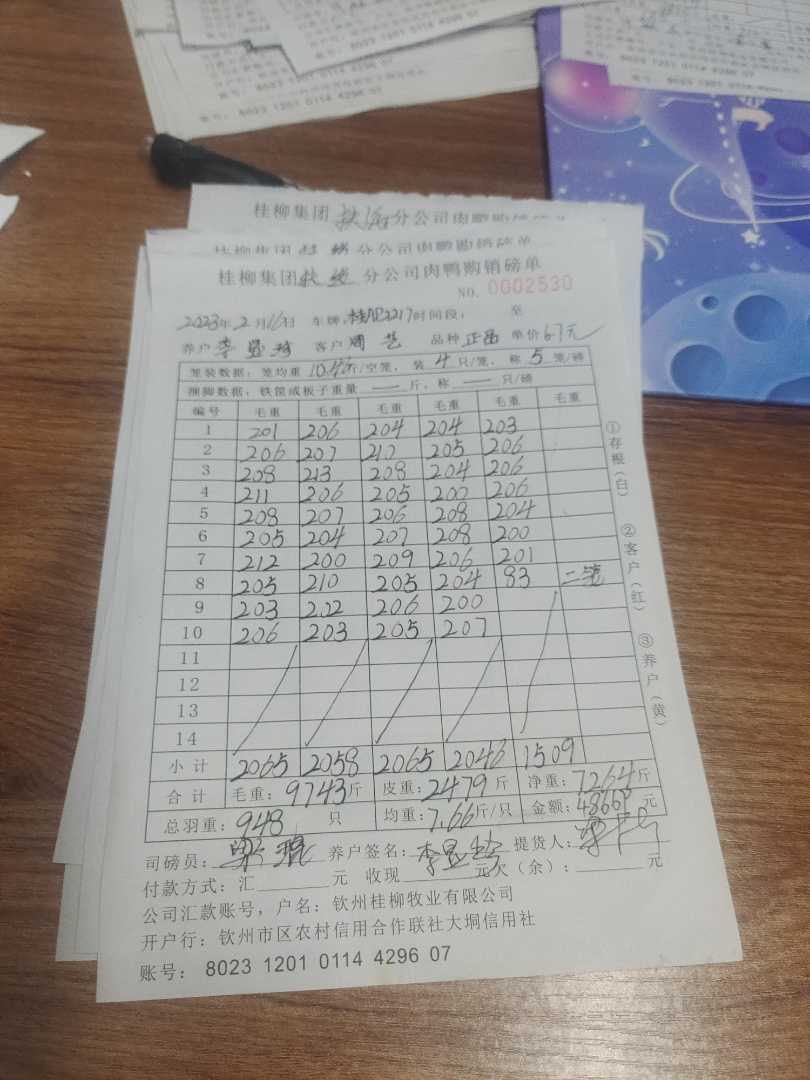 账号: 8023 1201 0114 4296 07
8023 1201 0114 4296 07
桂柳集团 分公司肉鸭购销磅单
桂柳集团 分公司肉鸭购销磅单
桂柳集团 分公司肉鸭购销磅单
NO. 0002530
2023年2月16日 车牌: 2217时间段: 至
养户 李显 客户 周 品种 正品 单价6.7元
笼装数据: 笼均重 10.46斤/空笼, 装 4 只/笼, 称 5 笼/磅
捆脚数据: 铁筐或板子重量 — 斤, 称 — 只/磅
编号 毛重 毛重 毛重 毛重 毛重 毛重
1 201 206 204 204 203
2 206 207 212 205 206
3 208 213 208 204 206
4 211 206 205 200 206
5 208 207 206 208 204
6 205 204 207 208 200
7 212 200 209 206 201
8 205 210 205 204 83 二笼
9 203 202 206 200
10 206 203 205 207
11
12
13
14
小计 2065 2058 2065 2046 1509
合计 毛重: 9743斤 皮重: 2479斤 净重: 7264斤
总羽重: 948 只 均重: 7.66斤/只 金额: 48668元
司磅员: 梁 养户签名: 李显 提货人:
付款方式: 汇 元 收现 元欠(余): 元
公司汇款账号, 户名: 钦州桂柳牧业有限公司
开户行: 钦州市区农村信用合作联社大垌信用社
账号: 8023 1201 0114 4296 07
①存根(白)
②客户(红)
③养户(黄)